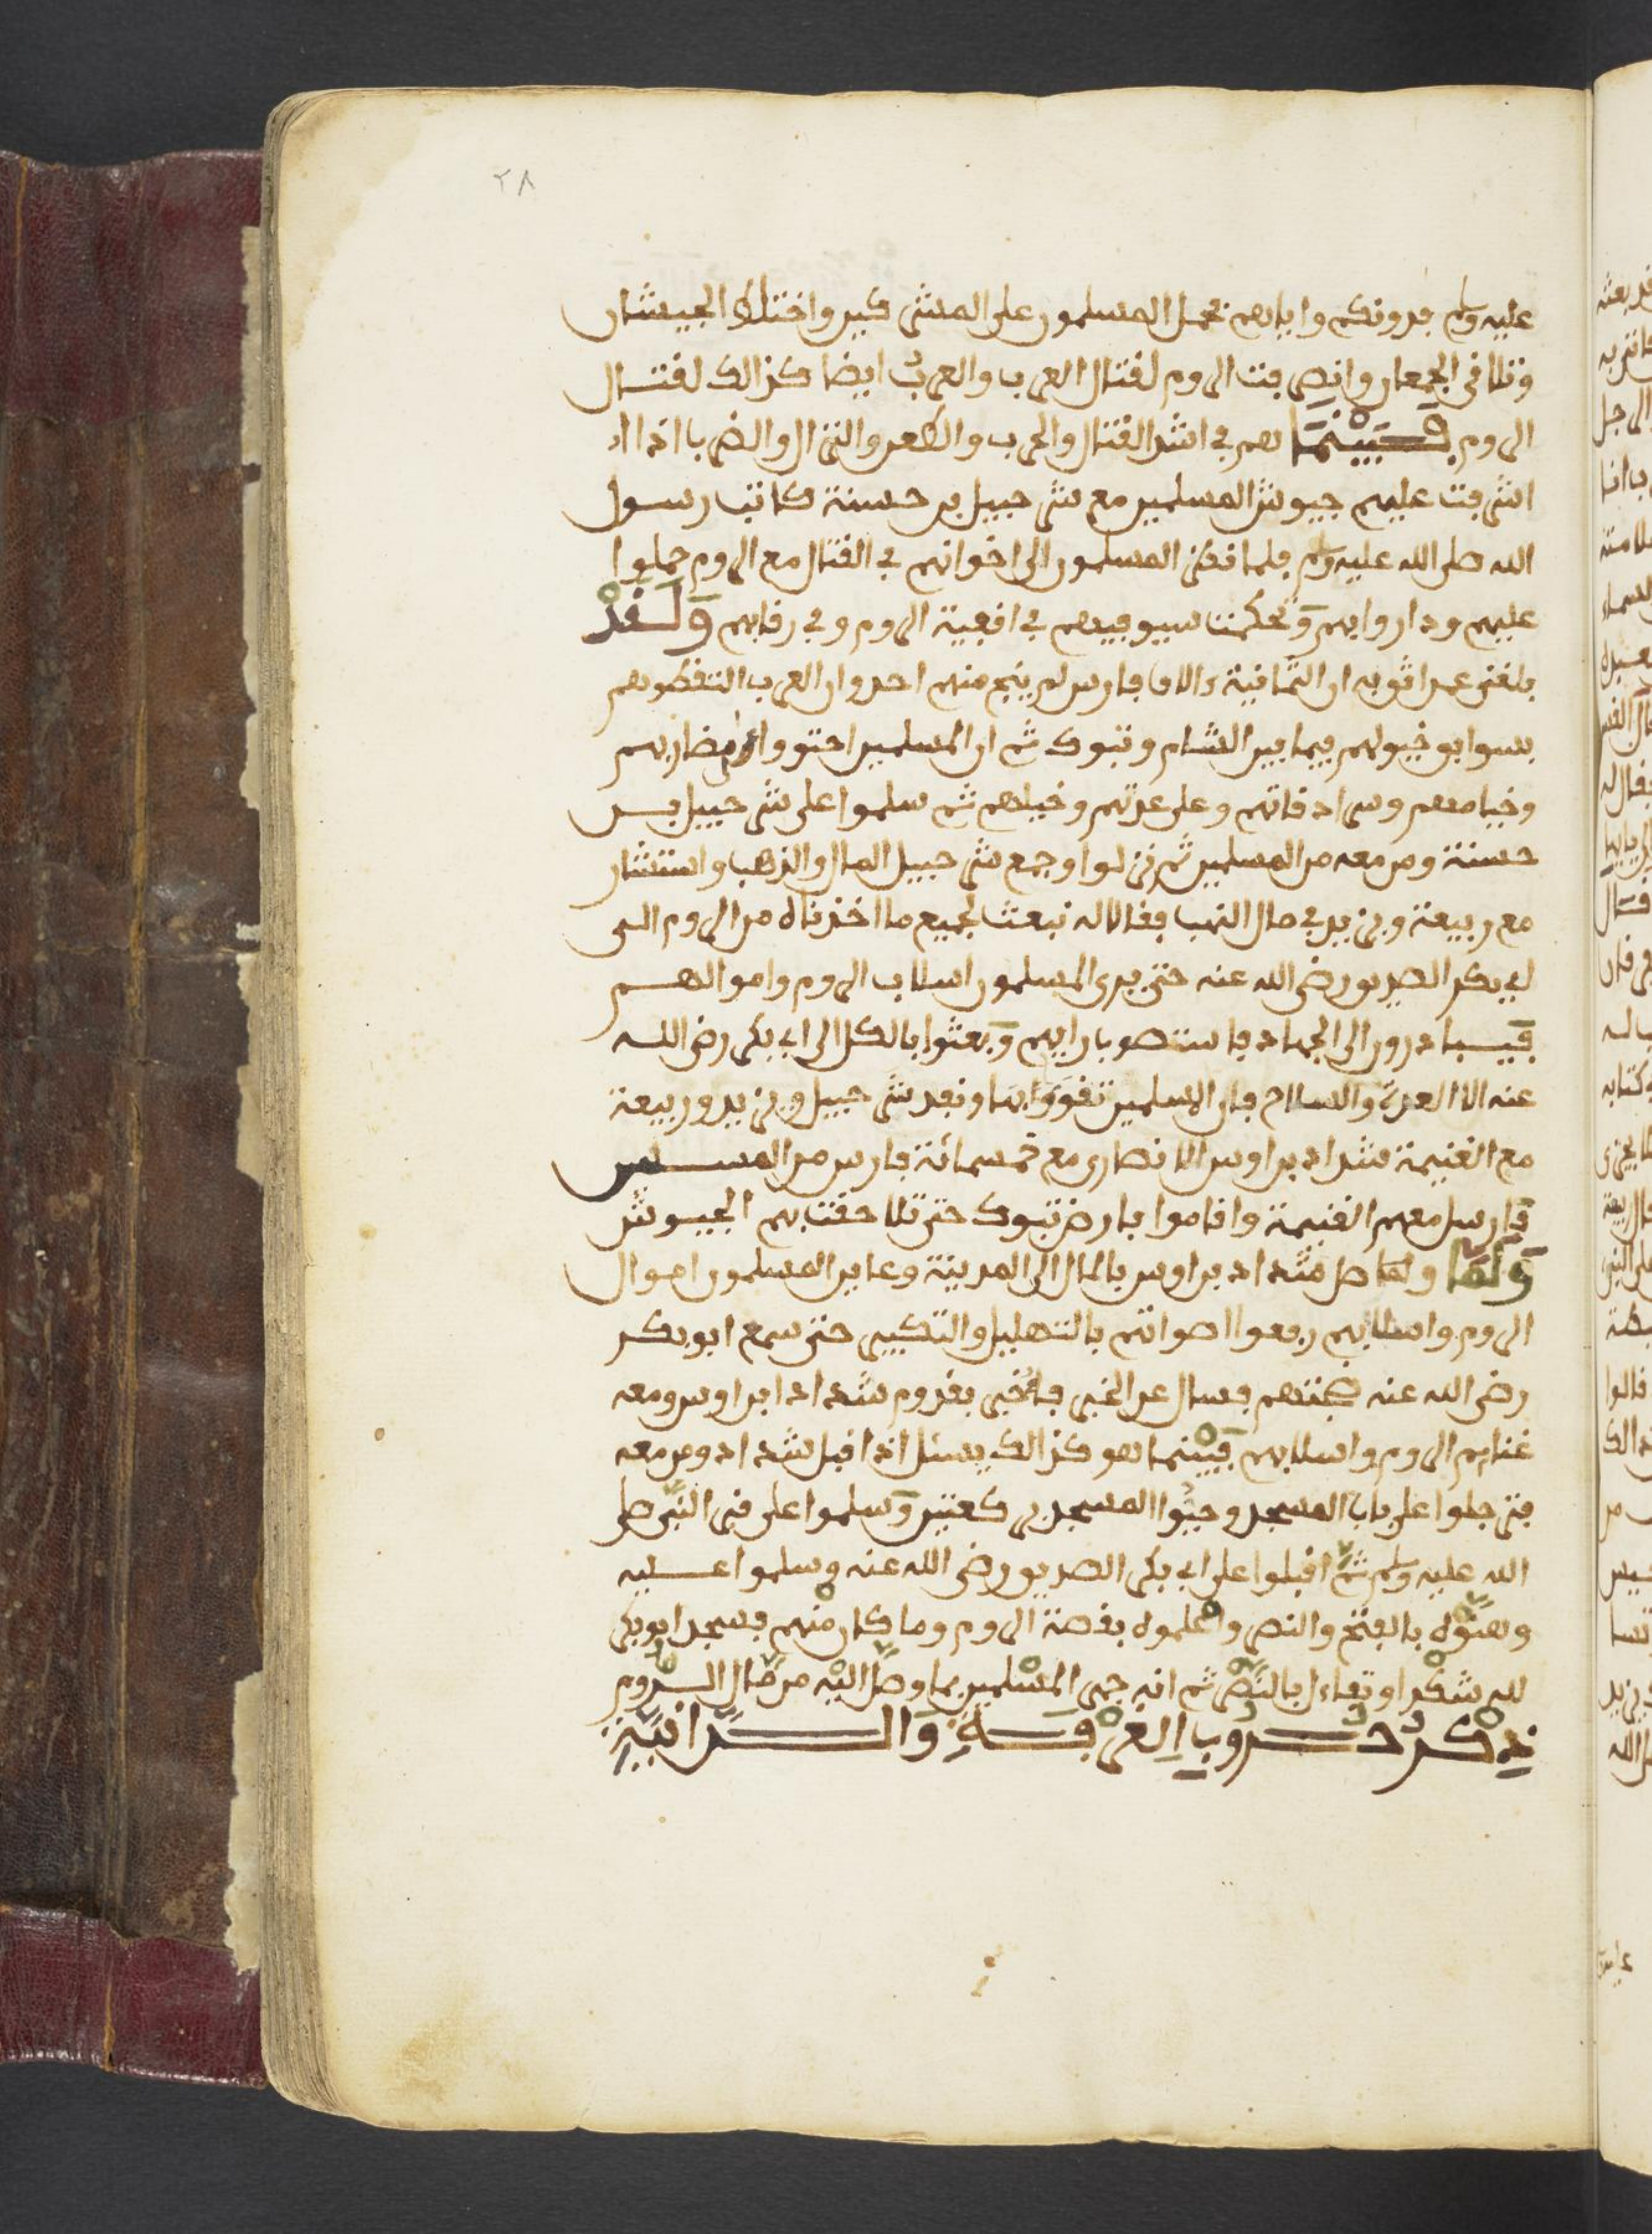 ٢٨
عليه وسلم فدونكم واياهم فحمل المسلمون على المشركين واختلط الجيشان
وتلاقى الجمعان وانصرفت الروم لقتال العرب والعرب ايضا كذالك لقتال
الروم فبينما هم في اشد القتال والحرب والطعن والنزال والضرب اذا
اشرفت عليهم جيوش المسلمين مع شرحبيل بن حسنة كاتب رسول
الله صلى الله عليه وسلم فلما نظر المسلمون الى اخوانهم في القتال مع الروم حملوا
عليهم وداروا بهم وتحكمت سيوفهم في اقفية الروم وفي رقابهم ولقد
بلغني عمن اثق به ان الثمانية ءالاف فارس لم ينج منهم احد وان العرب التقطوهم
بسوابق خيولهم فيما بين الشام وتبوك ثم ان المسلمين احتووا على مضاربهم
وخيامهم وسرادقاتهم وعلى عدتهم وخيلهم ثم سلموا على شرحبيل بن
حسنة ومن معه من المسلمين ثم نزلوا وجمع شرحبيل المال والذهب واستشار
مع ربيعة ويزيد في مال النهب فقالا له نبعث بجميع ما اخذناه من الروم الى
ابي بكر الصديق رضي الله عنه حتى يرى المسلمون اسلاب الروم واموالهم
فيبادرون الى الجهاد فاستصوب رايهم وبعثوا بالكل الى ابي بكر رضي الله
عنه الا العدة والسلاح فان المسلمين تقووا بها ونفد شرحبيل ويزيد وربيعة
مع الغنيمة شداد بن اوس الانصاري مع خمسمائة فارس من المسلمين
فارسل معهم الغنيمة واقاموا بارض تبوك حتى تلاحقت بهم الجيوش
ولما وصل شداد بن اوس بالمال الى المدينة وعاين المسلمون اموال
الروم واسلابهم رفعوا اصواتهم بالتهليل والتكبير حتى سمع ابو بكر
رضي الله عنه ضجتهم فسال عن الخبر فاخبر بقدوم شداد ابن اوس ومعه
غنايم الروم واسلابهم فبينما هو كذالك يسئل اذ اقبل شداد ومن معه
فترجلوا على باب المسجد وحيوا المسجد بركعتين وسلموا على قبر النبي صلى
الله عليه وسلم ثم اقبلوا على ابي بكر الصديق رضي الله عنه وسلموا عليه
وهنوه بالفتح والنصر واعلموه بقصة الروم وما كان منهم فسجد ابو بكر
لله شكرا وتفاءل بالنصر ثم انه جهز المسلمين بما وصل اليه من مال الروم
ذكر حروب العرقة والدانية